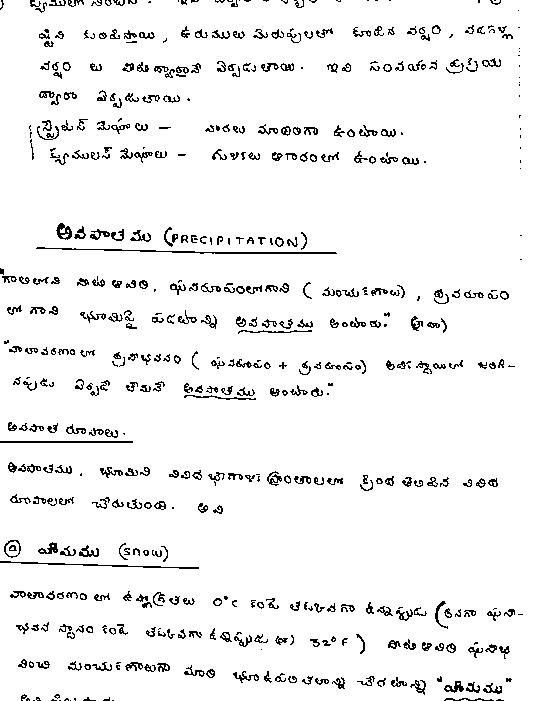 వర్షం లు వాటి ద్వారానే ఏర్పడుతాయి. ఇవి సంవహన క్రియ
ద్వారా ఏర్పడుతాయి.
స్ట్రేటస్ మేఘాలు – పొరలు మాదిరిగా ఉంటాయి.
క్యుములస్ మేఘాలు – ఆకారంలో ఉంటాయి.
అవపాతము (PRECIPITATION)
"గాలిలోని నీటి ఆవిరి, ఘనరూపంలోగాని ( మంచుకణాలు ) , ద్రవరూపం
లో గాని భూమిపై పడటాన్ని అవపాతము అంటారు." (లేదా)
"వాతావరణంలో ద్రవీభవనం ( ఘనరూపం + ద్రవరూపం) అధిస్థాయిలో జరిగి-
నపుడు ఏర్పడే తేమనే అవపాతము అంటారు."
అవపాత రూపాలు.
అవపాతము, భూమిని వివిధ భాగాలు ప్రాంతాలలో క్రింద తెలిపిన వివిధ
రూపాలలో చేరుతుంది. అవి
(a) హిమము (SNOW)
వాతావరణం లో ఉష్ణోగ్రతలు 0°C కంటే తక్కువగా ఉన్నప్పుడు (అనగా ఘనీ-
భవన స్థానం కంటే తక్కువగా ఉన్నప్పుడు (లేదా) 32°F ) నీటి ఆవిరి ఘనీభ
వించి మంచుకణాలుగా మారి భూఉపరితలాన్ని చేరటాన్ని "హిమము"